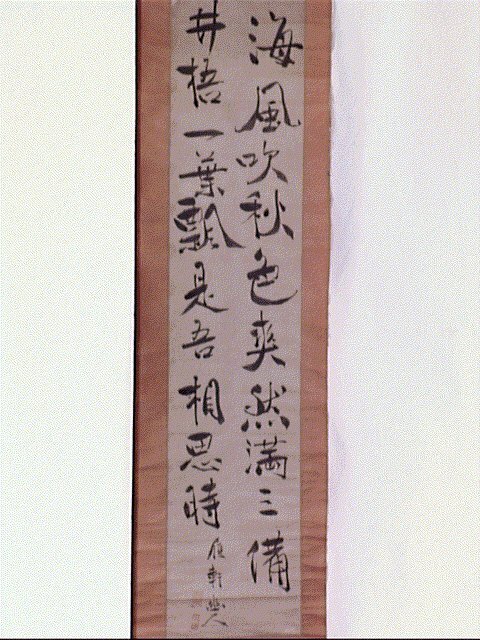 海風吹秋色爽然満三備
井梧一葉飄是吾相思時